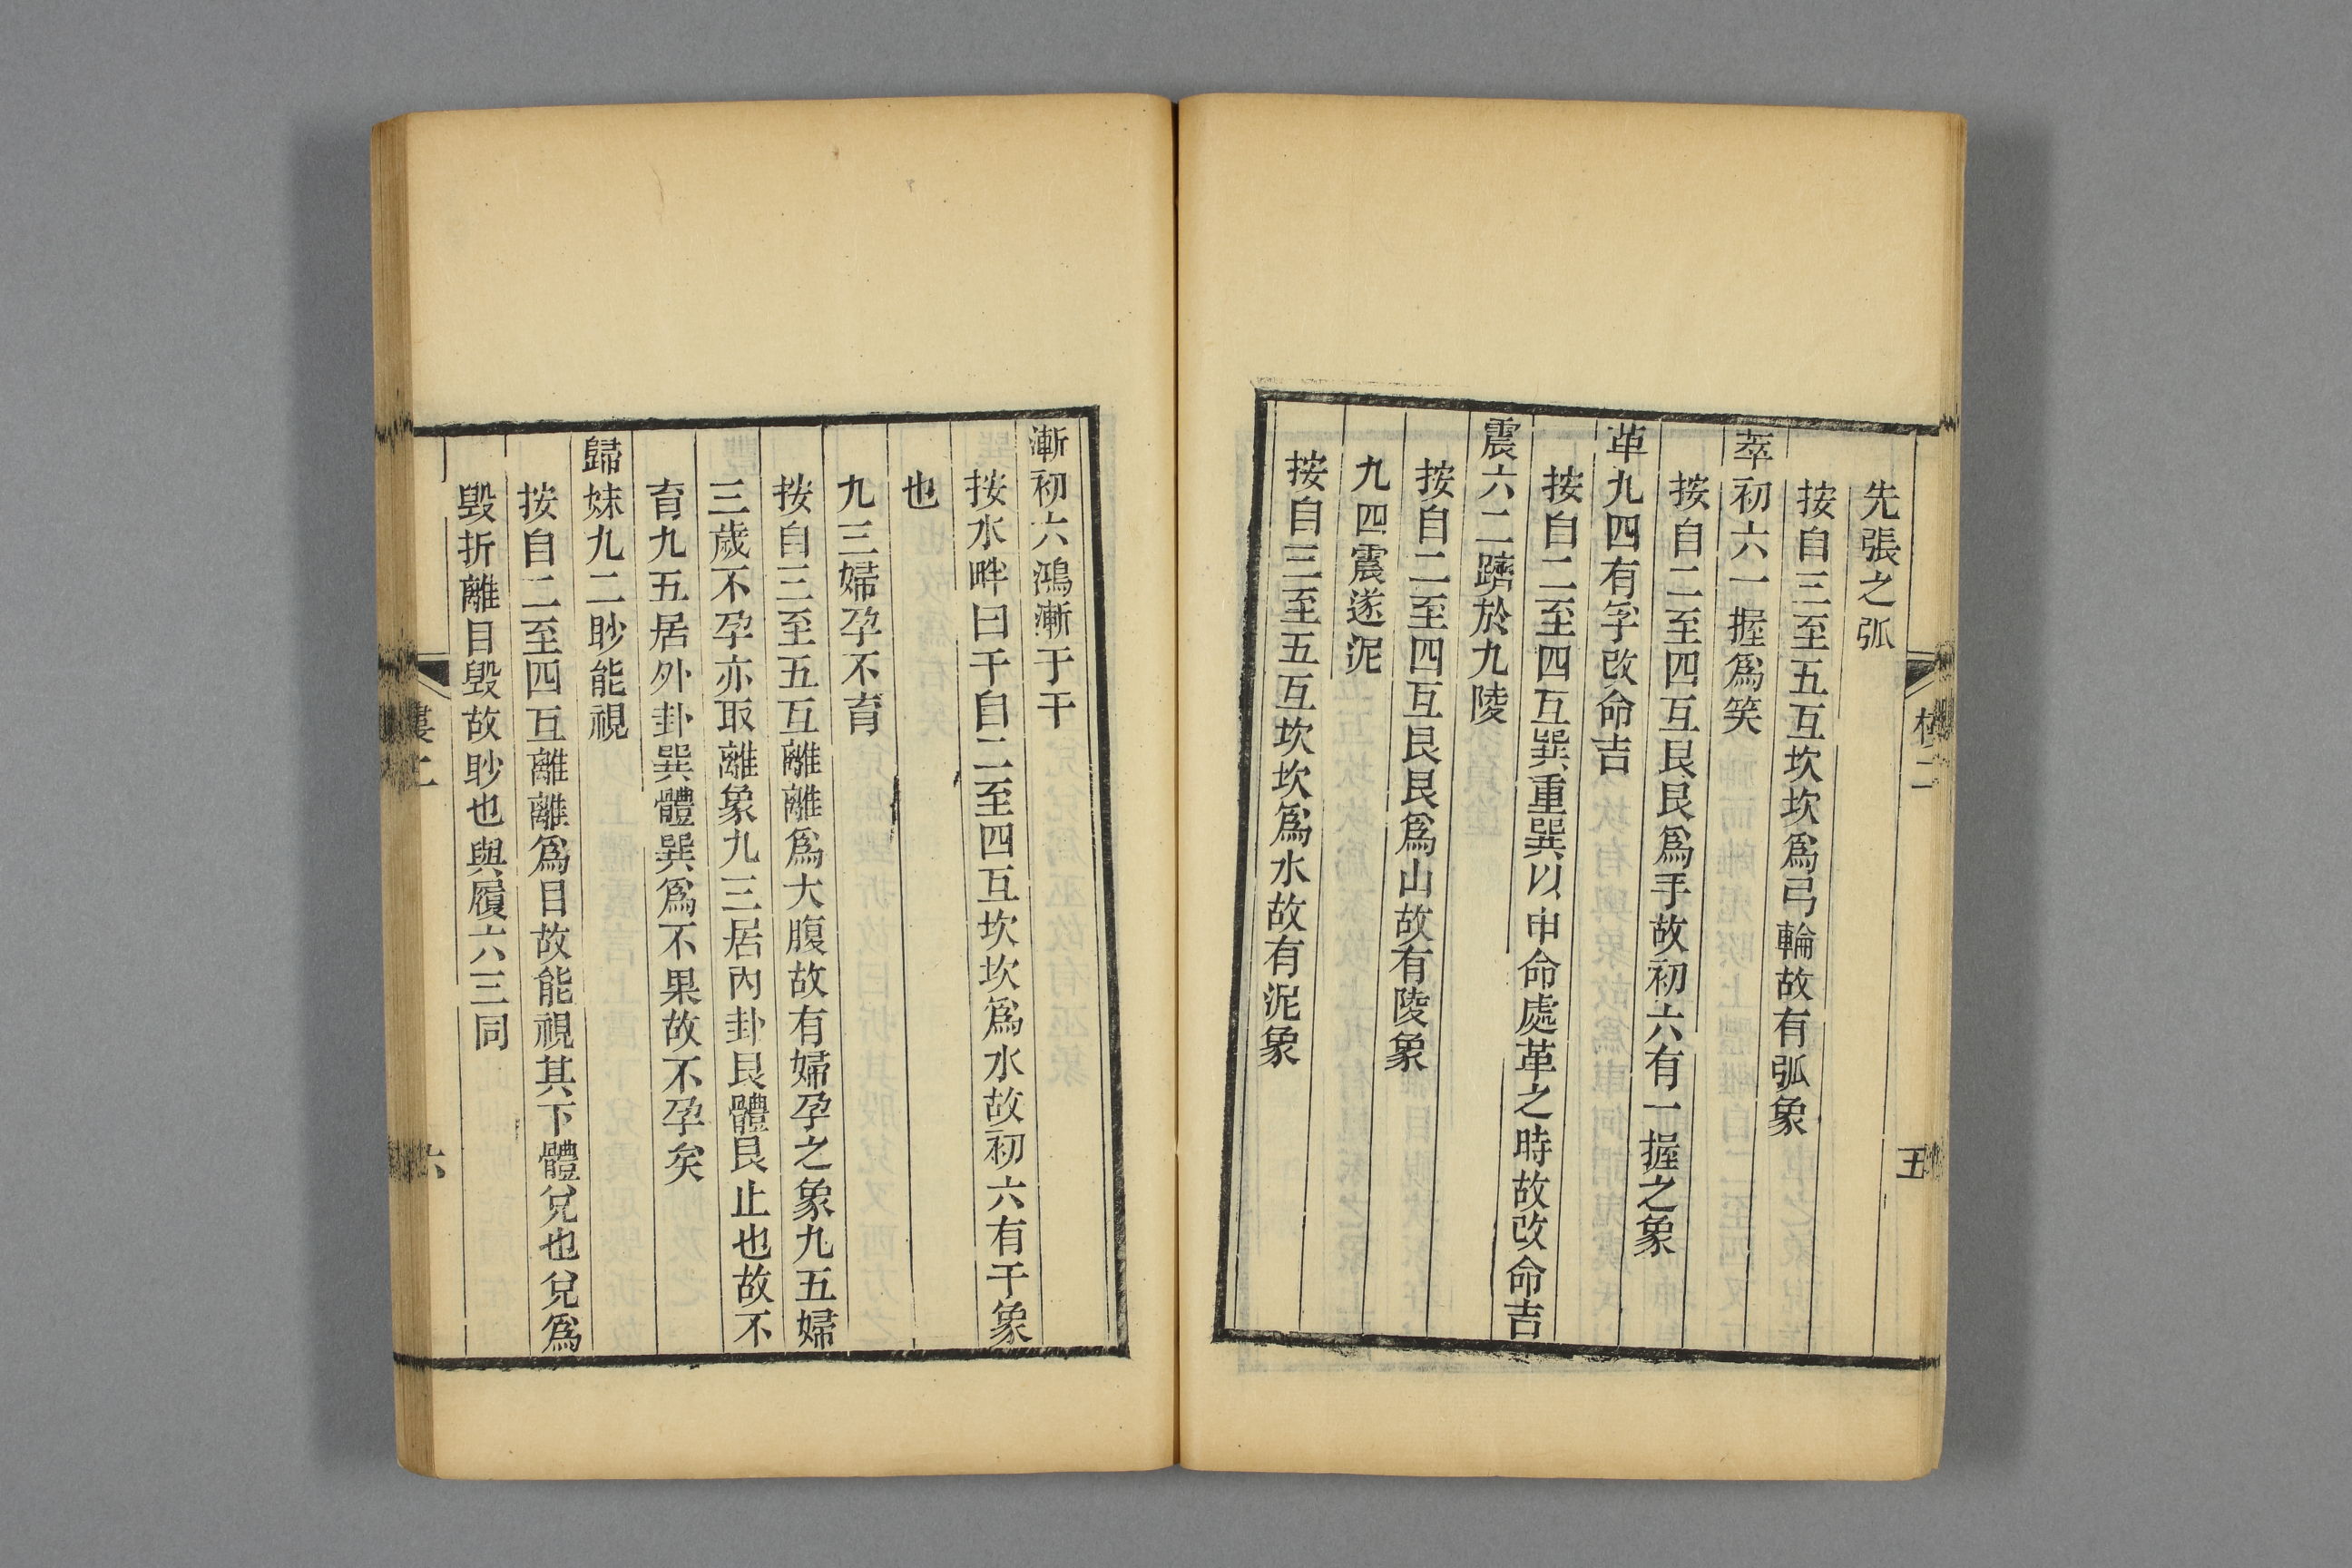 先張之弧
按自三至五互坎坎爲弓輪故有弧象
萃初六一握爲笑
按自二至四互艮艮爲手故初六有一握之象
革九四有孚改命吉
按自二至四互巽重巽以申命處革之時故改命吉
震六二躋於九陵
按自二至四互艮艮爲山故有陵象
九四震遂泥
按自三至五互坎坎爲水故有泥象
五
漸初六鴻漸于干
按水畔曰干自二至四互坎坎爲水故初六有干象
也
九三婦孕不育
按自三至五互離離爲大腹故有婦孕之象九五婦
三歲不孕亦取離象九三居內卦艮體艮止也故不
育九五居外卦巽體巽爲不果故不孕矣
歸妹九二眇能視
按自二至四互離離爲目故能視其下體兌也兌爲
毀折離目毀故眇也與履六三同
六